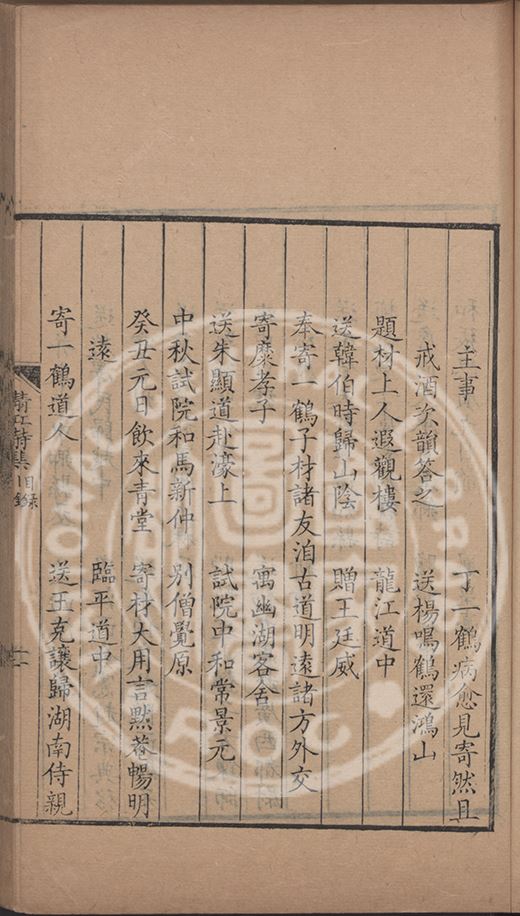 主事　丁一鶴病愈見寄然且
戒酒次韻答之　送楊鳴鶴還鴻山
題材上人遐觀樓　龍江道中
送韓伯時歸山陰　贈王廷威
奉寄一鶴子材諸友洎古道明遠諸方外交
寄麋孝子　寓幽湖客舍
送朱顯道赴濠上　試院中和常景元
中秋試院和馬新仲　別僧覺原
癸丑元日飲來青堂　寄材大用言默菴暢明
遠　臨平道中
寄一鶴道人　送王克讓歸湖南侍親
詩集目錄